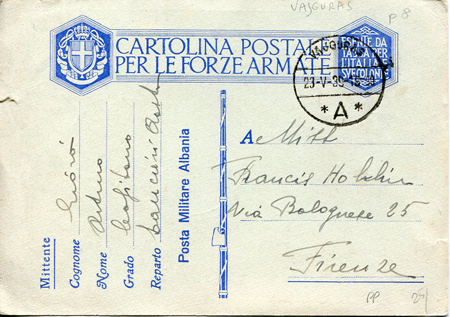 VAJGURAS
P 8
CARTOLINA POSTALE
PER LE FORZE ARMATE
ESENTE DA
TASSA PER
L'ITALIA
SUE COLONIE
VAJGURAS
23-V-39
*A*
Mittente
Cognome
Nome Arduino
Grado Capitano
Reparto Lancieri Aosta
Posta Militare Albania
A Mitt
Francis
Via Bolognese 25
Firenze
PP